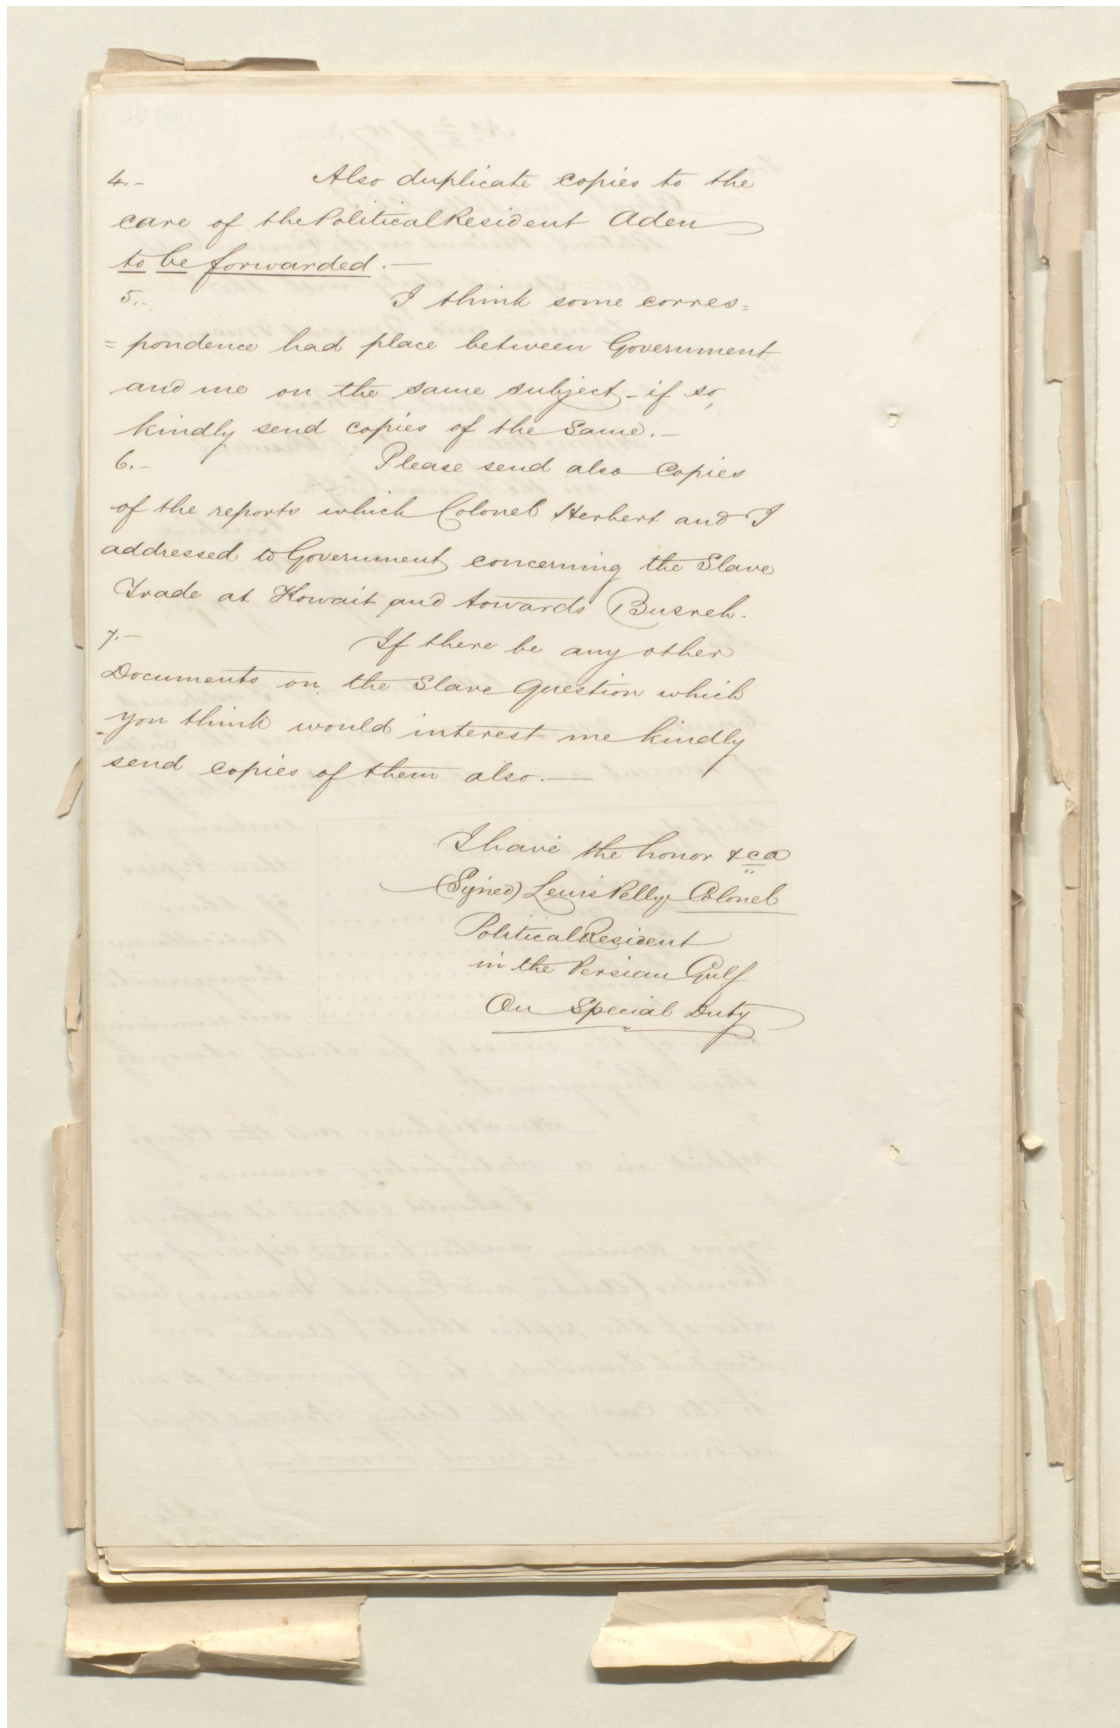 4.- Also duplicate copies to the
care of the Political Resident Aden
to be forwarded.-
5.- I think some corres=
=pondence had place between Government
and me on the same subject - if so,
kindly send copies of the same.-
6.- Please send also Copies
of the reports which Colonel Herbert and I
addressed to Government concerning the Slave
Trade at Kowait and towards Busreh.
7.- If there be any other
Documents on the Slave Question which
you think would interest me kindly
send copies of them also.-
I have the honor &ca
(Signed) Lewis Pelly Colonel
Political Resident
in the Persian Gulf
On Special Duty